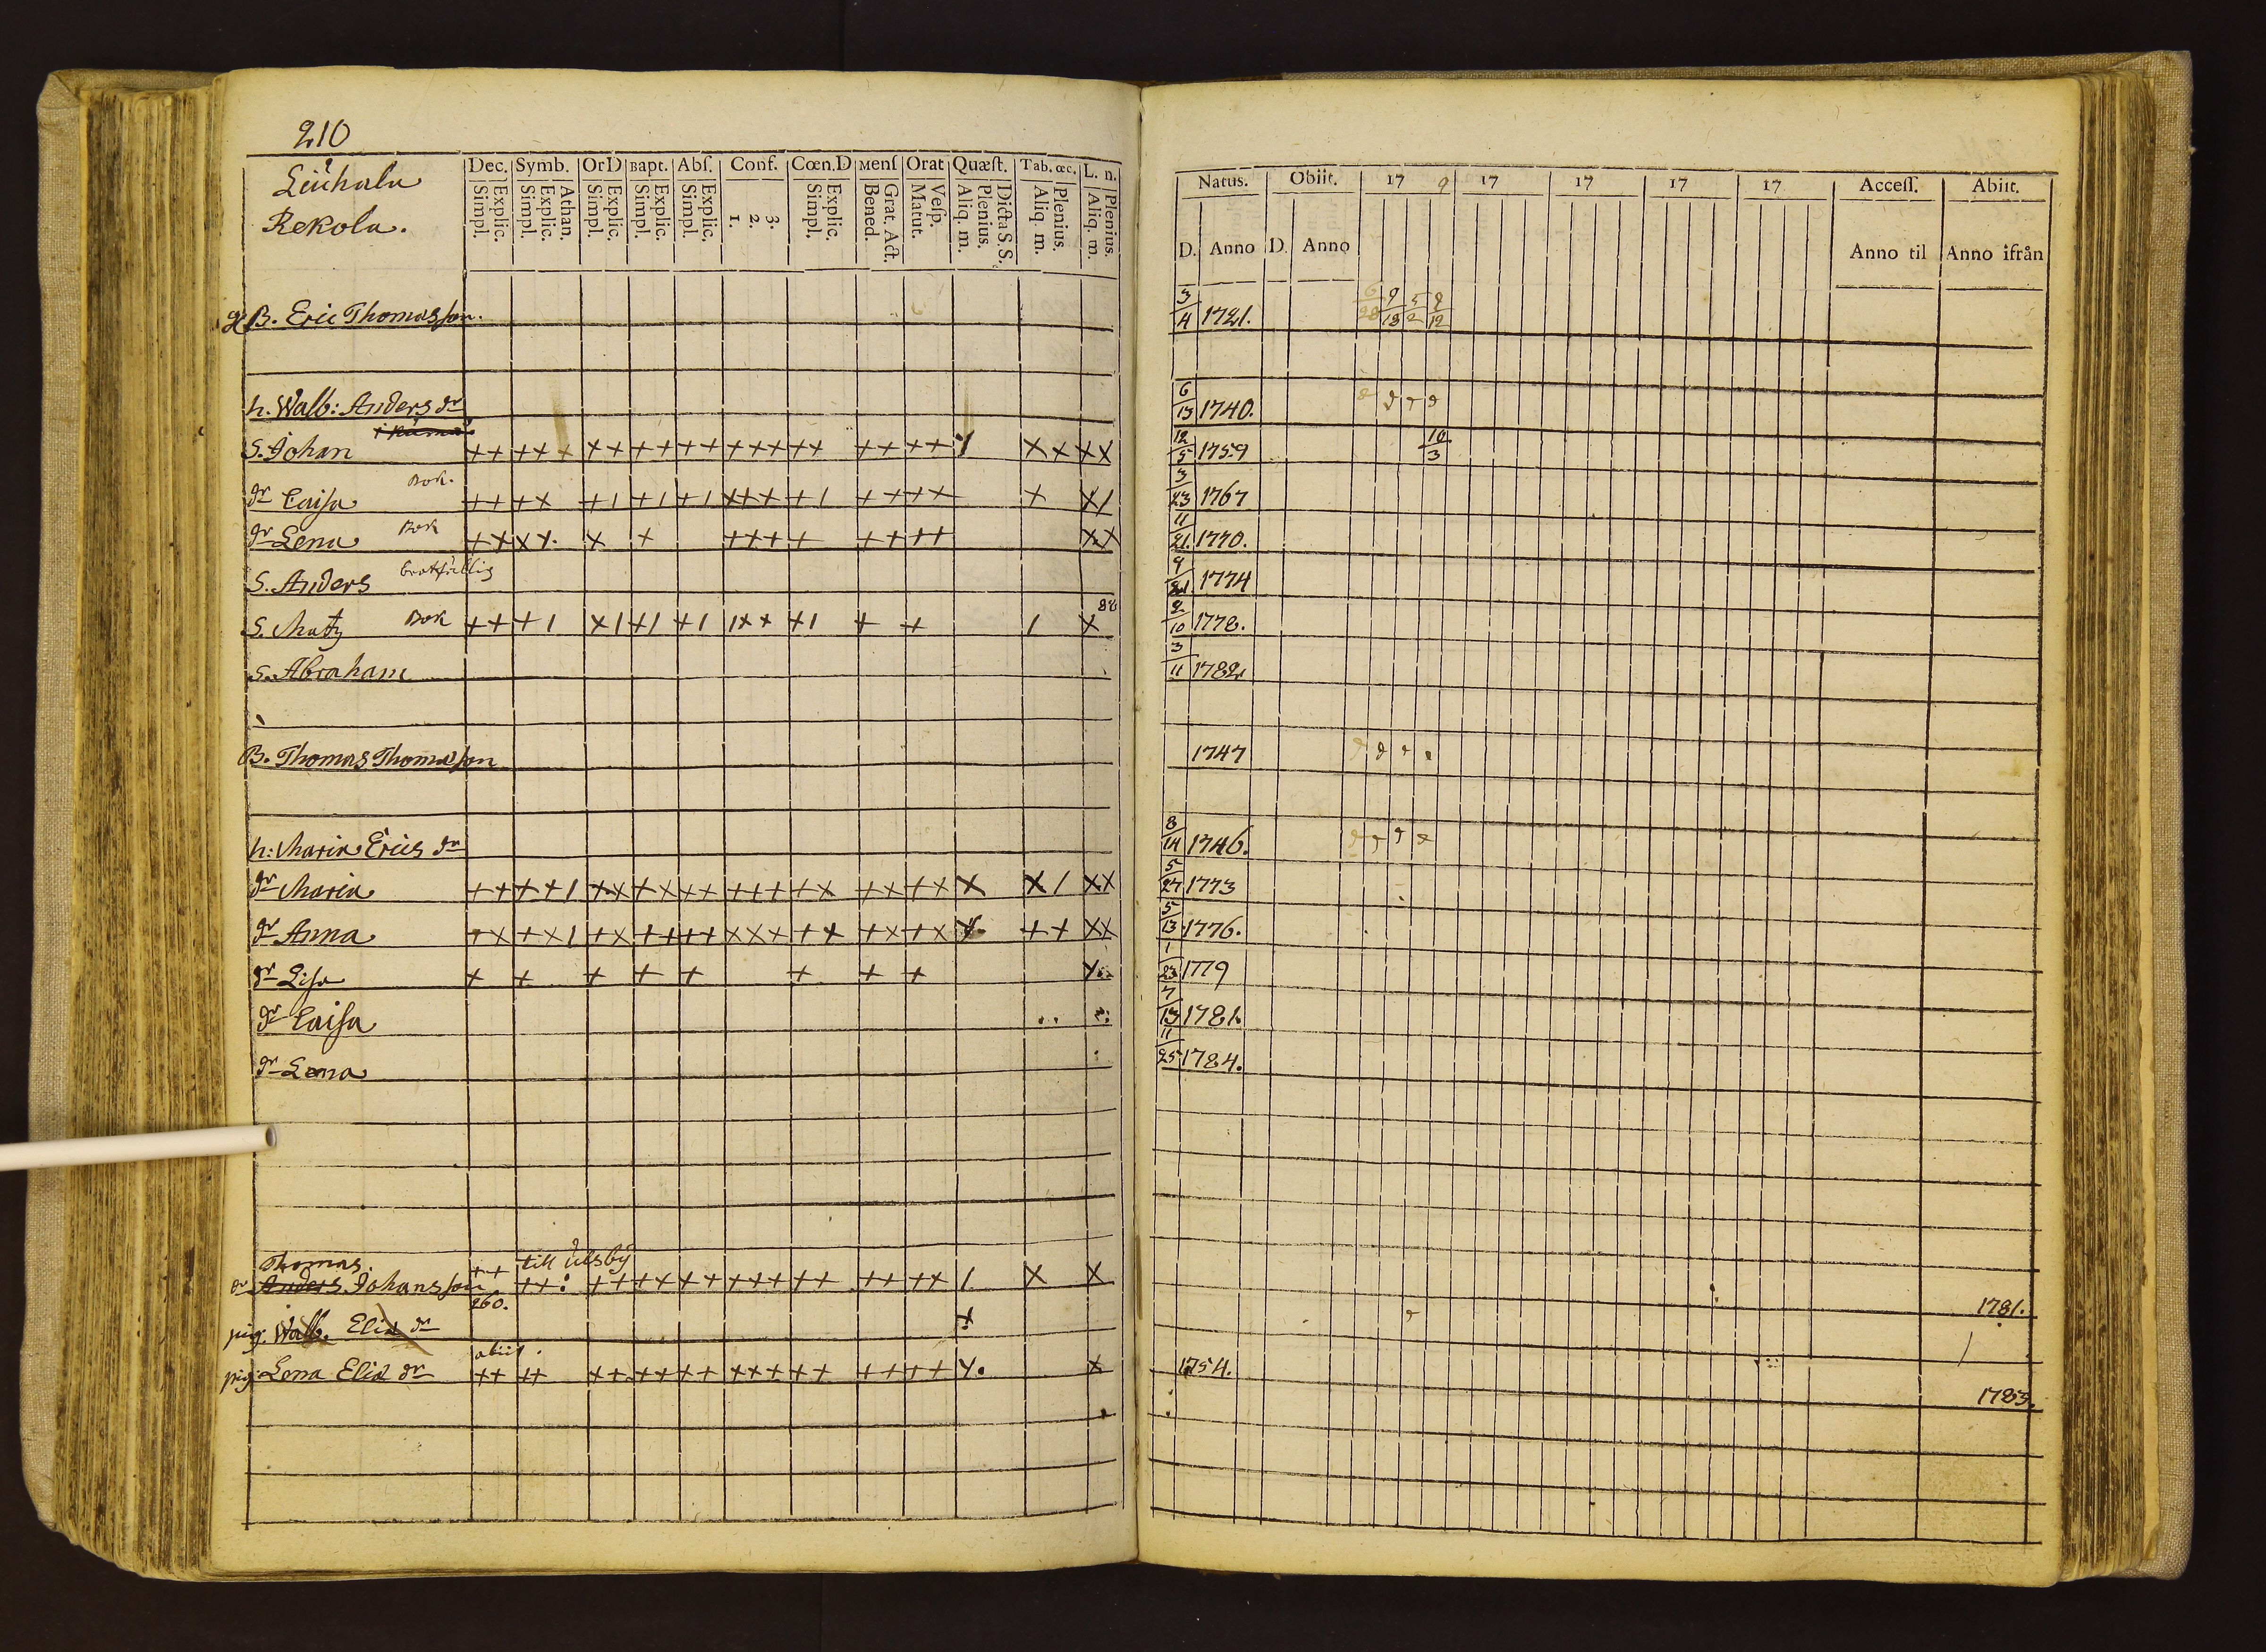 210
Liuhala
Rekola.
Dec. Symb. OrD Bapt. Abſ. Conf. Cœn.D Menſ Orat Quæſt. Tab. œc. L. n.
Explic. Simpl. Athan. Explic. Simpl. Explic. Simpl. Explic. Simpl. Explic. Simpl. 3. 2. 1. Explic. Simpl. Grat. Act. Bened. Veſp. Matut. Dicta S.S. Plenius. Aliq. m. Plenius. Aliq. m. Plenius. Aliq. m.
Natus. Obiit. 17 9 17 17 17 17 Acceſſ. Abiit.
D. Anno D. Anno Anno til Anno ifrån
B. Eric Thomasson. 3/4 1721. 9/13 5/2 9/12
h. Walb: Anders dr 6/13 1740.
S. Johan ++ +++ ++ ++ ++ +++ ++ ++ ++ ++ ++ 12/5 1759 10/3
Bok.
dr Caisa ++ ++ +1 +1 +1 +++ +1 ++ ++ + +/ 3/23 1767
dr Lena Bok ++ ++ + + +++ + ++ ++ ++ 11/21. 1770.
S. Anders brotfällig 1774
88
S. Matz Bok ++ +1 +1 +1 +1 1++ +1 + + 1 + 2/10 1778.
S. Abraham 3/11 1782
B. Thomas Thomasson 1747
h: Maria Erics dr 8/14 1746.
dr Maria ++ ++1 ++ ++ ++ +++ ++ ++ ++ + +/ ++ 5/27 1773
dr Anna ++ ++1 ++ ++ ++ +++ ++ ++ ++ + ++ ++ 5/13 1776.
dr Lisa + + + + + + + + 1/23 1779
dr Caisa 7/13 1781.
dr Lena 11/25 1784.
Thomas. ++ till Ulsby
dr Anders Johansson ++ ++ ++ ++ +++ ++ ++ ++ 1. + +
260. 1781.
pig. Walb. Elia dr +
abiit.
pig Lena Elia dr ++ ++ ++ ++ ++ +++ ++ ++ ++ + 1754.
1783.